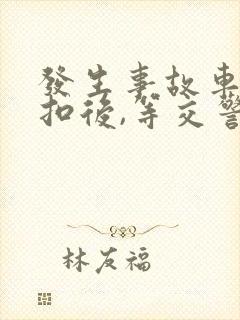 發生事故車
扣後,等交警
林友福